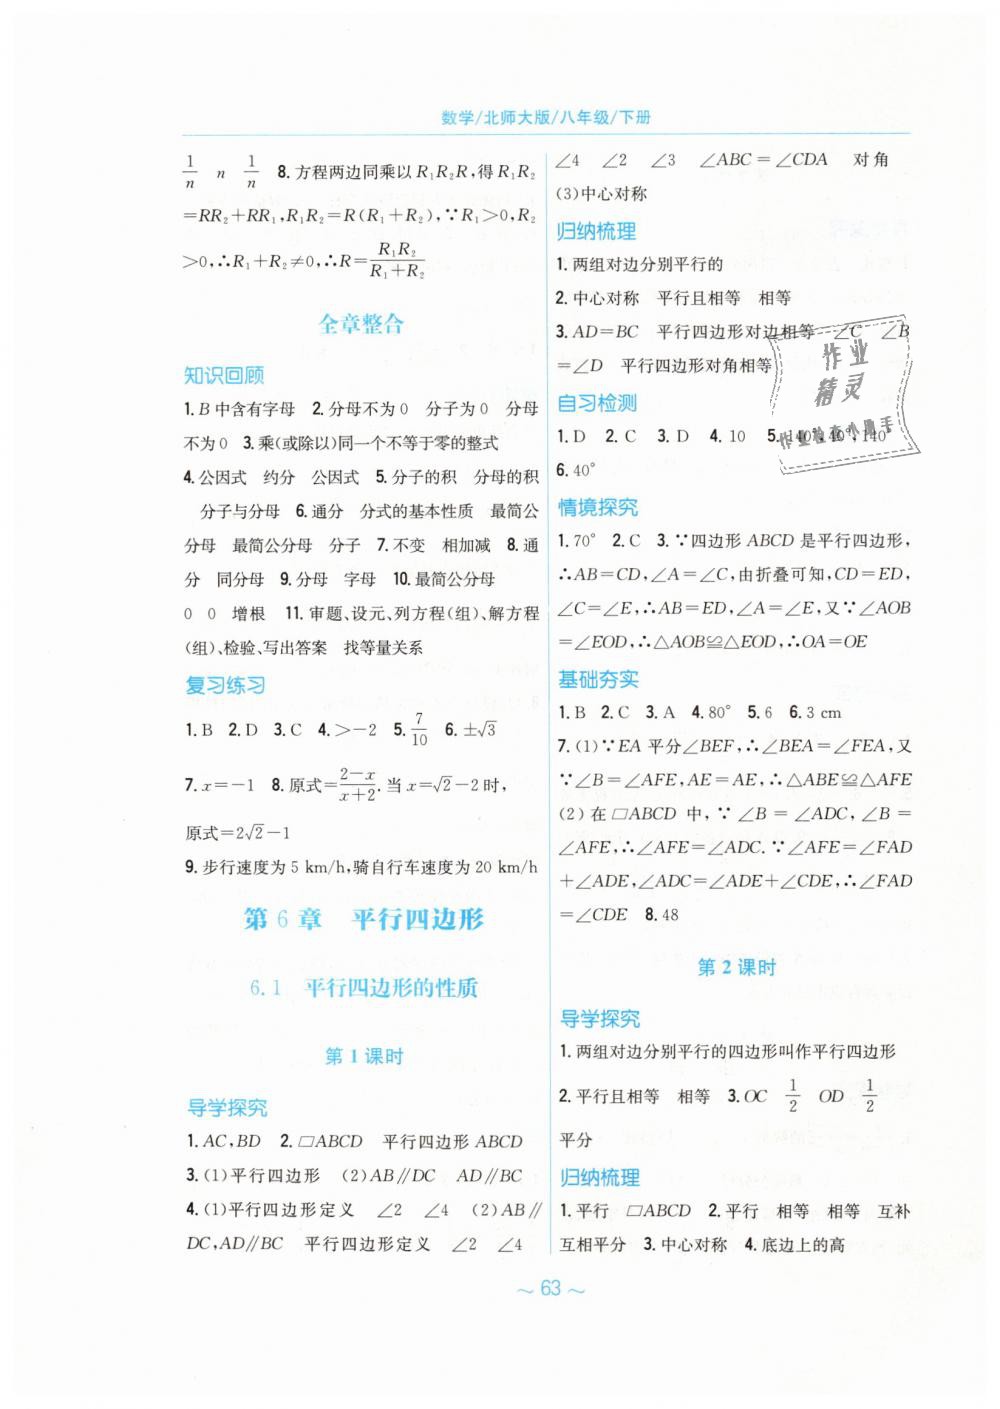 数学/北师大版/八年级/下册
1/n  n  1/n  8.方程两边同乘以R₁R₂R,得R₁R₂
=RR₂+RR₁,R₁R₂=R(R₁+R₂),∵R₁>0,R₂
>0,∴R₁+R₂≠0,∴R=R₁R₂/(R₁+R₂)
全章整合
知识回顾
1.B中含有字母  2.分母不为0  分子为0  分母
不为0  3.乘(或除以)同一个不等于零的整式
4.公因式  约分  公因式  5.分子的积  分母的积
分子与分母  6.通分  分式的基本性质  最简公
分母  最简公分母  分子  7.不变  相加减  8.通
分  同分母  9.分母  字母  10.最简公分母
0  0  增根  11.审题、设元、列方程(组)、解方程
(组)、检验、写出答案  找等量关系
复习练习
1.B  2.D  3.C  4.>-2  5.7/10  6.±√3
7.x=-1  8.原式=(2-x)/(x+2).当x=√2-2时,
原式=2√2-1
9.步行速度为5 km/h,骑自行车速度为20 km/h
第6章  平行四边形
6.1  平行四边形的性质
第1课时
导学探究
1.AC,BD  2.▱ABCD  平行四边形ABCD
3.(1)平行四边形  (2)AB∥DC  AD∥BC
4.(1)平行四边形定义  ∠2  ∠4  (2)AB∥
DC,AD∥BC  平行四边形定义  ∠2  ∠4
∠4  ∠2  ∠3  ∠ABC=∠CDA  对角
(3)中心对称
归纳梳理
1.两组对边分别平行的
2.中心对称  平行且相等  相等
3.AD=BC  平行四边形对边相等  ∠C  ∠B
=∠D  平行四边形对角相等
自习检测
1.D  2.C  3.D  4.10  5.140°,40°,140°
6.40°
作业
精灵
作业检查小助手
情境探究
1.70°  2.C  3.∵四边形ABCD是平行四边形,
∴AB=CD,∠A=∠C,由折叠可知,CD=ED,
∠C=∠E,∴AB=ED,∠A=∠E,又∵∠AOB
=∠EOD,∴△AOB≌△EOD,∴OA=OE
基础夯实
1.B  2.C  3.A  4.80°  5.6  6.3 cm
7.(1)∵EA平分∠BEF,∴∠BEA=∠FEA,又
∵∠B=∠AFE,AE=AE,∴△ABE≌△AFE
(2)在▱ABCD中,∵∠B=∠ADC,∠B=
∠AFE,∴∠AFE=∠ADC.∵∠AFE=∠FAD
+∠ADE,∠ADC=∠ADE+∠CDE,∴∠FAD
=∠CDE  8.48
第2课时
导学探究
1.两组对边分别平行的四边形叫作平行四边形
2.平行且相等  相等  3.OC  1/2  OD  1/2
平分
归纳梳理
1.平行  ▱ABCD  2.平行  相等  相等  互补
互相平分  3.中心对称  4.底边上的高
~ 63 ~